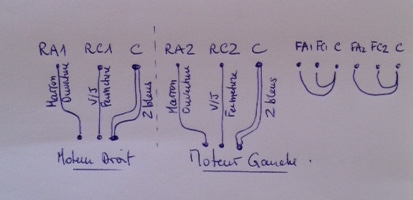 RA1 RC1 C RA2 RC2 C FA1 FC1 C FA2 FC2 C
Marron
Ouverture
V/J
Fermeture
2 bleus
Marron
Ouverture
V/J
Fermeture
2 bleus
Moteur Droit
Moteur Gauche.